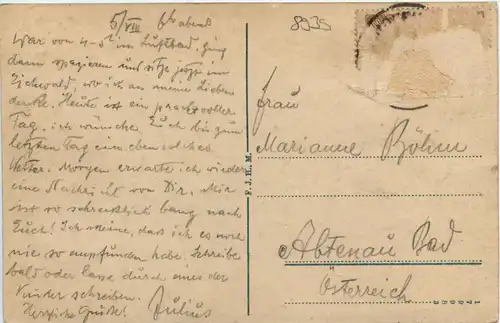 5/VIII 6h abends
War von 4-5h im Luftbad, ging
dann spazieren und sitze jetzt im
Eichwald, wo ich an meine Lieben
denke. Heute ist ein prachtvoller
Tag, ich wünsche Euch bis zum
letzten Tag ein ebensolches
Wetter. Morgen erwarte ich wieder
eine Nachricht von Dir. Mir
ist so schrecklich bang nach
Euch! Ich meine, dass ich es noch
nie so empfunden habe. Schreibe
bald oder lasse durch eines der
Kinder schreiben.
Herzliche Grüße! Julius
F. J. H. M.
8935
Frau
Marianne Böhm
Abtenau Bad
Österreich